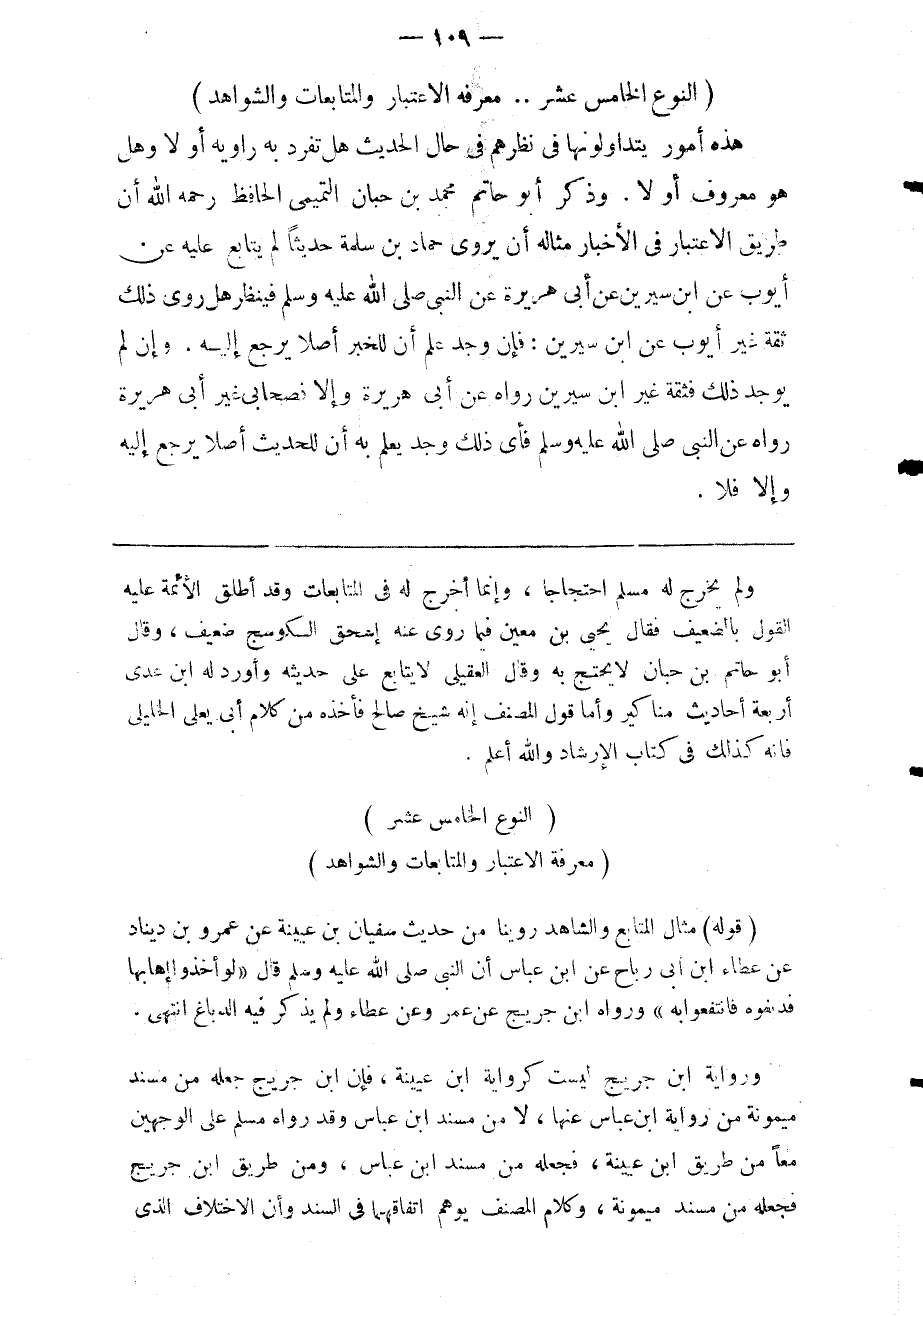 — ١٠٩ —
( النوع الخامس عشر .. معرفه الاعتبار والمتابعات والشواهد )
هذه أمور يتداولونها فى نظرهم فى حال الحديث هل تفرد به راويه أو لا وهل
هو معروف أو لا . وذكر أبو حاتم محمد بن حبان التميمى الحافظ رحمه الله أن
طريق الاعتبار فى الأخبار مثاله أن يروى حماد بن سلمة حديثاً لم يتابع عليه عن
أيوب عن ابن سيرين عن أبى هريرة عن النبى صلى الله عليه وسلم فينظر هل روى ذلك
ثقة غير أيوب عن ابن سيرين : فإن وجد علم أن للخبر أصلا يرجع إليه . وإن لم
يوجد ذلك فثقة غير ابن سيرين رواه عن أبى هريرة وإلا فصحابى غير أبى هريرة
رواه عن النبى صلى الله عليه وسلم فأى ذلك وجد يعلم به أن للحديث أصلا يرجع إليه
وإلا فلا .
ولم يخرج له مسلم احتجاجا ، وإنما أخرج له فى المتابعات وقد أطلق الأئمة عليه
القول بالضعيف فقال يحيى بن معين فيما روى عنه إسحق الكوسج ضعيف ، وقال
أبو حاتم بن حبان لا يحتج به وقال العقيلى لا يتابع على حديثه وأورد له ابن عدى
أربعة أحاديث مناكير وأما قول المصنف إنه شيخ صالح فأخذه من كلام أبى يعلى الخليلى
فانه كذلك فى كتاب الإرشاد والله أعلم .
( النوع الخامس عشر )
( معرفة الاعتبار والمتابعات والشواهد )
( قوله ) مثال المتابع والشاهد روينا من حديث سفيان بن عيينة عن عمرو بن ديناد
عن عطاء ابن أبى رباح عن ابن عباس أن النبى صلى الله عليه وسلم قال « لو أخذوا إهابها
فدبغوه فانتفعوا به » ورواه ابن جريج عن عمر وعن عطاء ولم يذكر فيه الدباغ انتهى .
ورواية ابن جريج ليست كرواية ابن عيينة ، فإن ابن جريج جعله من مسند
ميمونة من رواية ابن عباس عنها ، لا من مسند ابن عباس وقد رواه مسلم على الوجهين
معاً من طريق ابن عيينة ، فجعله من مسند ابن عباس ، ومن طريق ابن جريج
فجعله من مسند ميمونة ، وكلام المصنف يوهم اتفاقهما فى السند وأن الاختلاف الذى